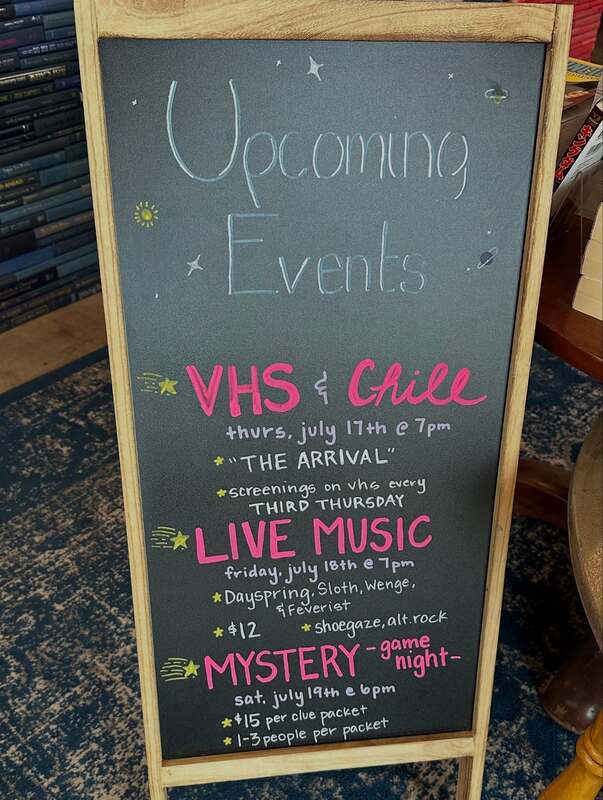 Upcoming
Events
VHS & Chill
thurs, july 17th @ 7pm
"THE ARRIVAL"
screenings on vhs every
THIRD THURSDAY
LIVE MUSIC
friday, july 18th @ 7pm
Dayspring, Sloth, Wenge,
& Feverist
$12 shoegaze, alt.rock
MYSTERY -game
night-
sat, july 19th @ 6pm
$15 per clue packet
1-3 people per packet